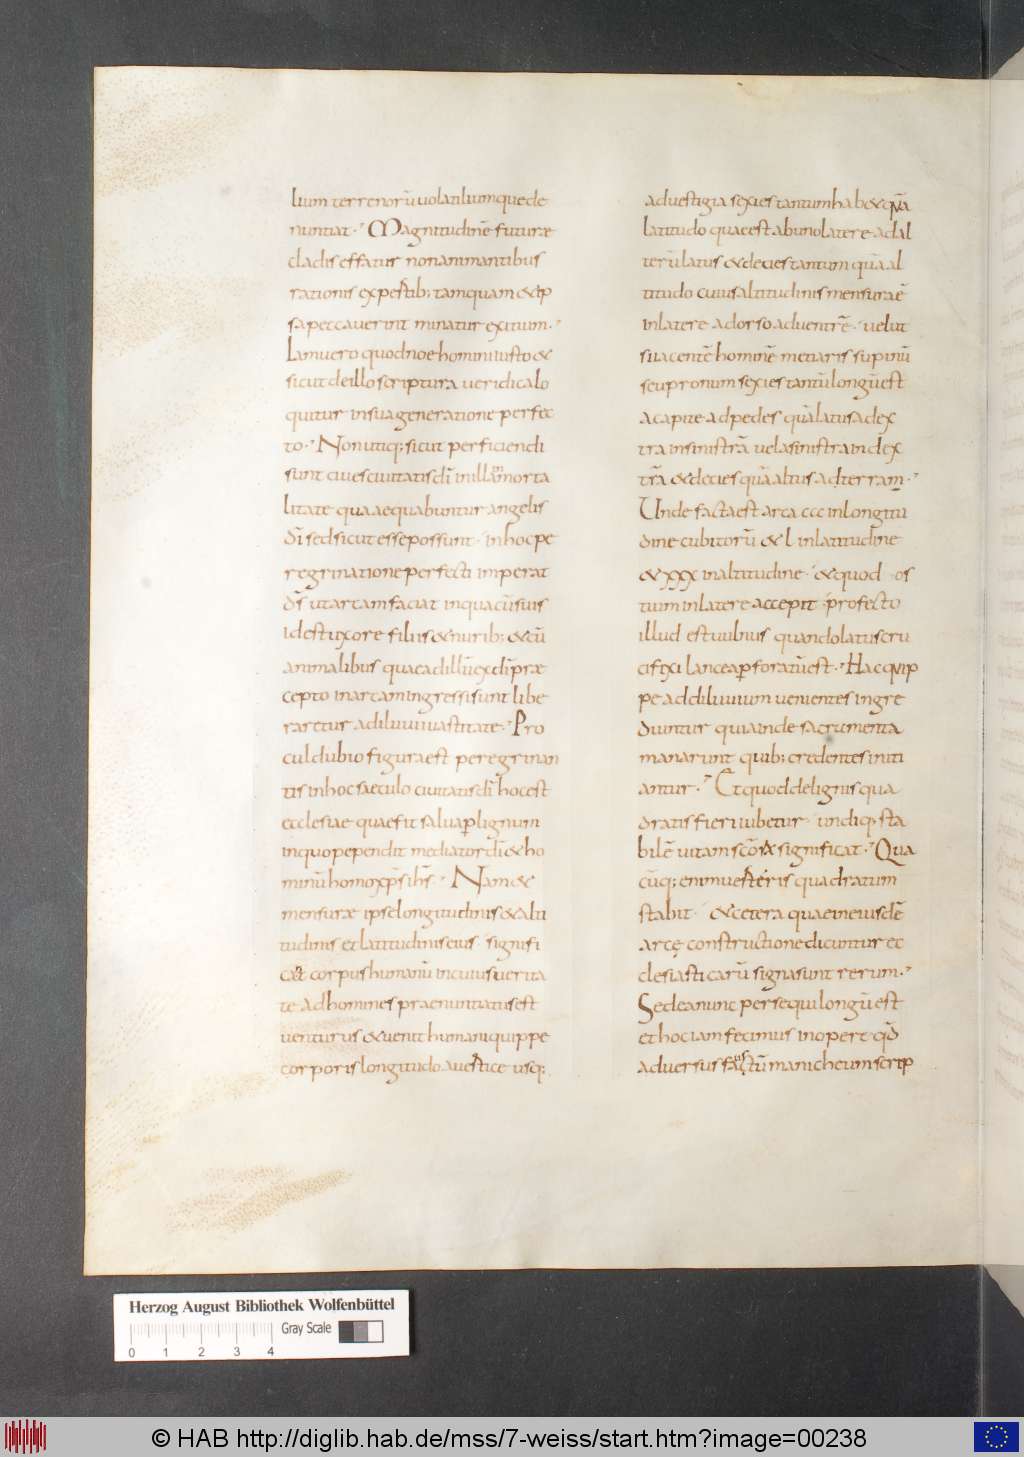 lium terrenorū uolatiliumquede
nuntiat· Magnitudinē futuræ
cladis effatur non animantibus
rationis expertib; tamquam & ip
sa peccauerint minatur exitium·
Iam uero quod noe homini iusto &
sicut de illo scriptura ueridica lo
quitur in sua generatione perfec
to· Non utiq; sicut perficiendi
sunt ciues ciuitatis dī in illa inmorta
litate qua aequabuntur angelis
dī sed sicut esse possunt· in hoc pe
regrinatione perfecti imperat
ds̄ ut arcam faciat in qua cū suis
id est uxore filiis & nurib; & cū
animalibus quae ad illū ex dī præ
cepto in arcam ingressi sunt libe
raretur a diluuii uastitate· Pro
cul dubio figura est peregrinan
tis in hoc saeculo ciuitatis dī hoc est
ecclesiae quae fit salua ꝑ lignum
in quo pependit mediator dī & ho
minū homo xp̄s ih̄s· Nam &
mensuræ ipse longitudinis & alti
tudinis et latitudinis eius· signifi
cat corpus humanū in cuius uerita
te ad homines praenuntiatus est
uenturus & uenit humani quippe
corporis longitudo a uertice usq;
ad uestigia sexies tantum hab& quā
latitudo quae est ab uno latere ad al
terū latus & decies tantum quā al
titudo cuius altitudinis mensura ē
in latere a dorso ad uentrē· uelut
si iacentē hominē metiaris supinū
seu pronum sexies tantū longū est
a capite ad pedes quā latus a dex
tra in sinistrā uel a sinistra in dex
trā & decies quā altus a terram·
Unde facta est arca ccc in longitu
dine cubitorū & l in latitudine
& xxx in altitudine· & quod os
tium in latere accepit· profecto
illud est uulnus quando latus cru
cifixi lancea ꝑforatū est· Hac quip
pe ad diluuium uenientes ingre
diuntur quia inde sacrumenta
manarunt quib; credentes initi
antur· Et quod de lignis qua
dratis fieri iubetur· undiq; sta
bilē uitam scōrū significat· Qua
cūq; enim uerteris quadratum
stabit· & cetera quae in eiusdē
arcę constructione dicuntur ec
clesiasticarū signa sunt rerum·
Sed ea nunc persequi longū est
et hoc iam fecimus in opere qd̄
aduersus faustū manicheum scrip
Herzog August Bibliothek Wolfenbüttel
Gray Scale
0 1 2 3 4
© HAB http://diglib.hab.de/mss/7-weiss/start.htm?image=00238